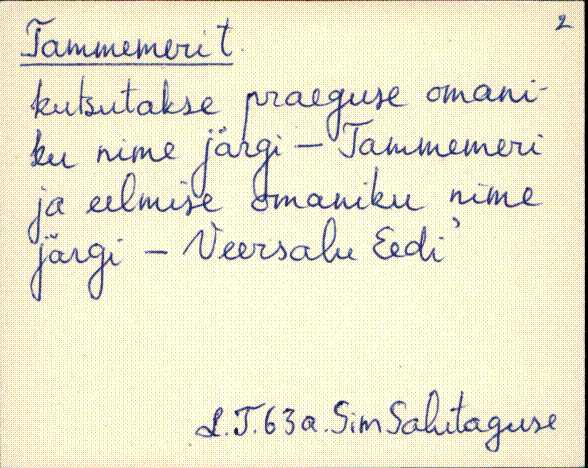 2
Tammemerit
kutsutakse praeguse omani-
ku nime järgi – Tammemeri
ja eelmise omaniku nime
järgi – Veersalu Eedi'
L.T.63a. Sim Salutaguse